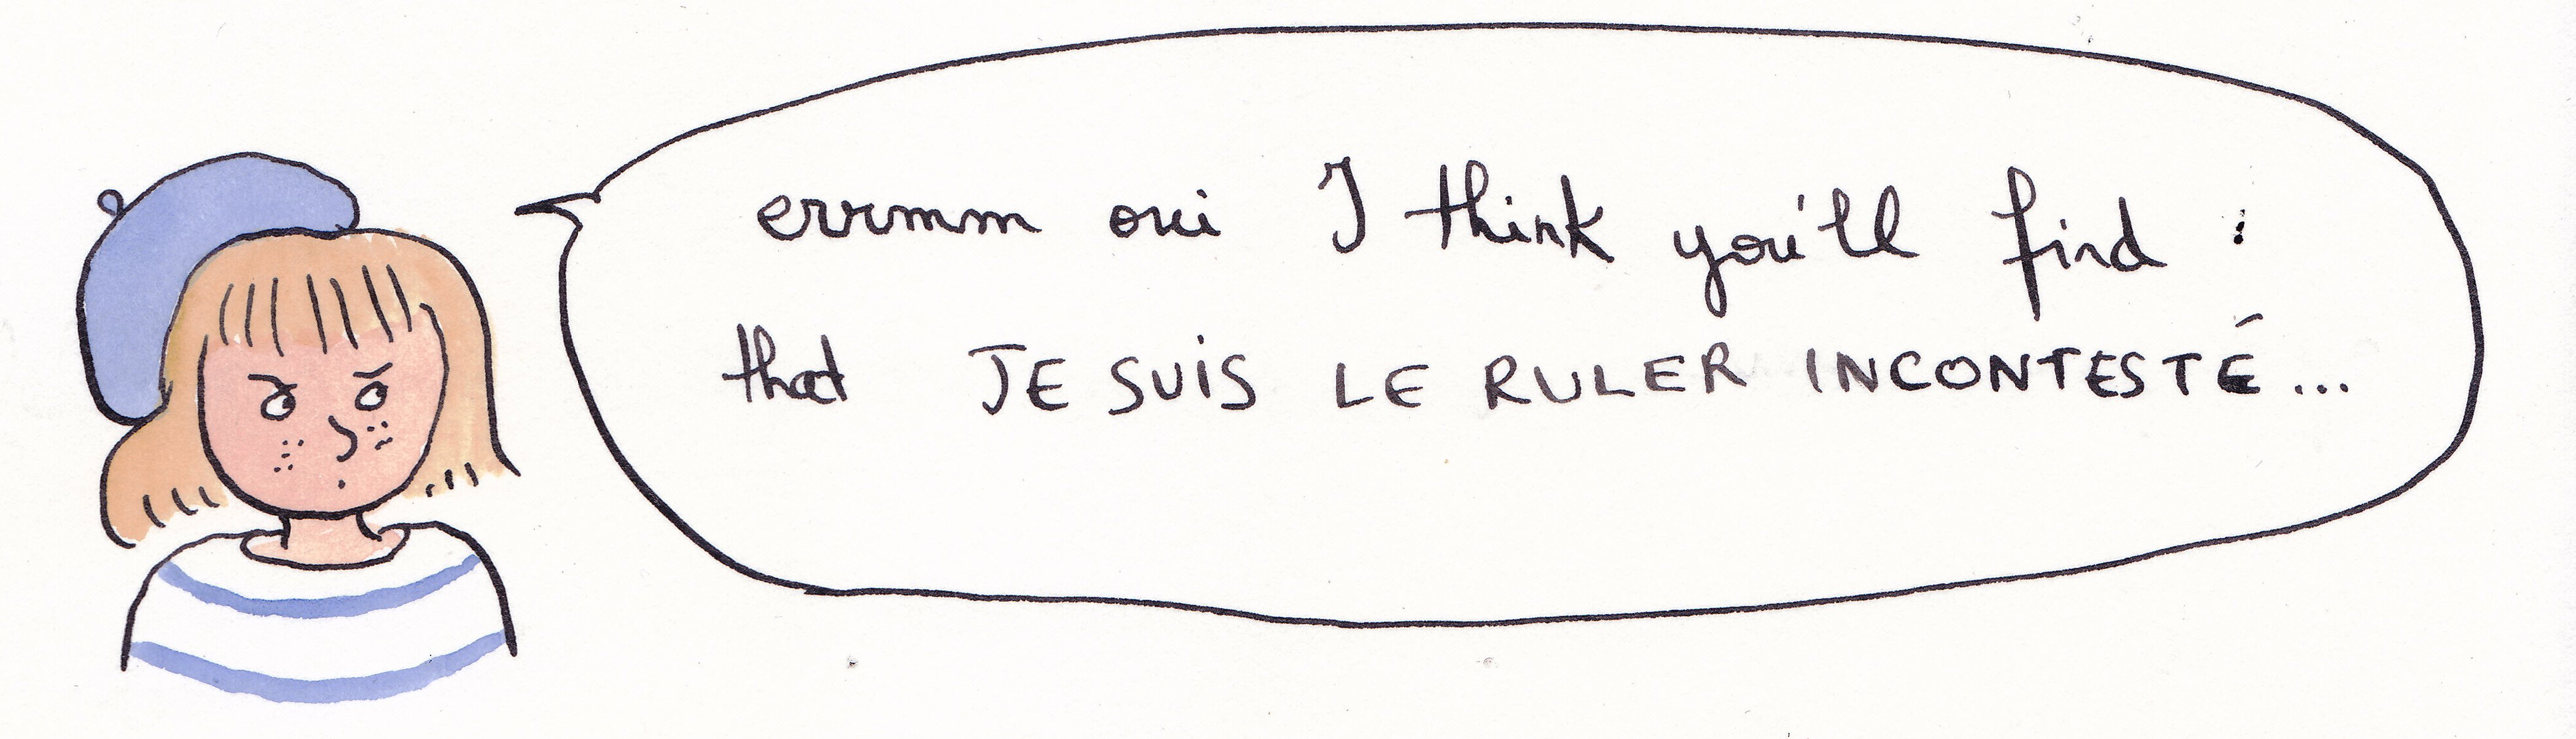 errmm oui I think you'll find
that JE SUIS LE RULER INCONTESTÉ...